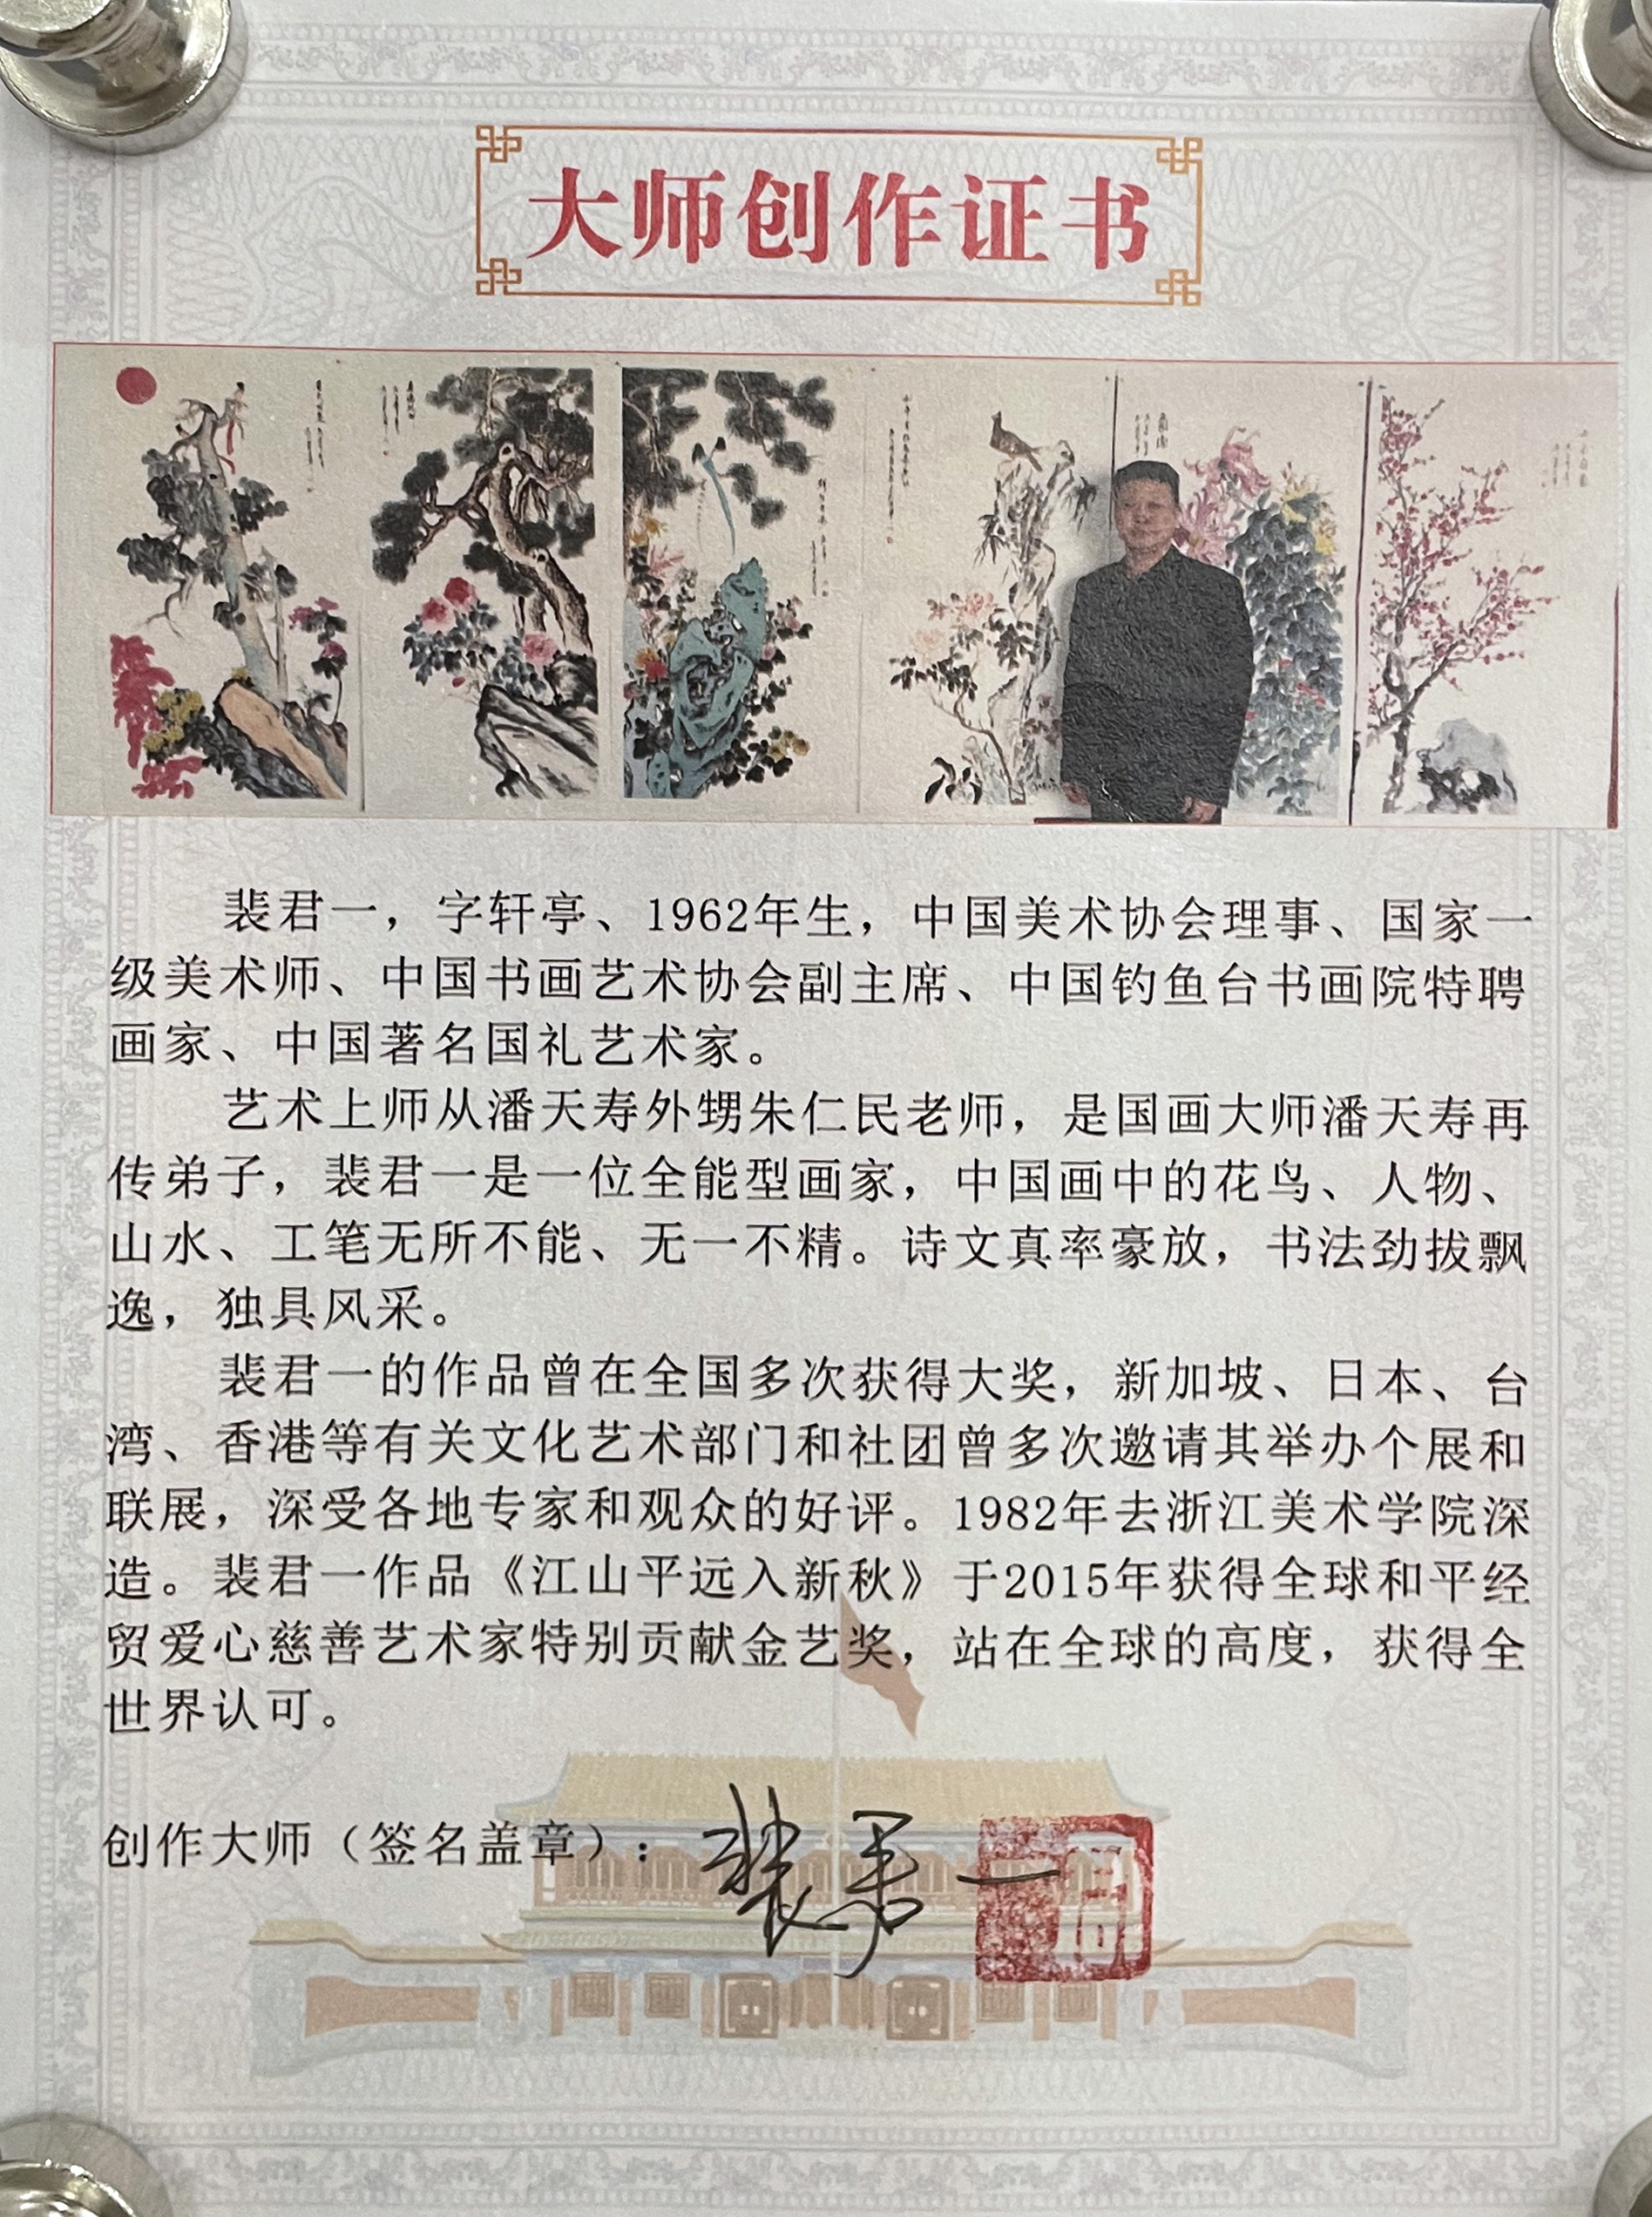 大师创作证书
裴君一，字轩亭、1962年生，中国美术协会理事、国家一
级美术师、中国书画艺术协会副主席、中国钓鱼台书画院特聘
画家、中国著名国礼艺术家。
艺术上师从潘天寿外甥朱仁民老师，是国画大师潘天寿再
传弟子，裴君一是一位全能型画家，中国画中的花鸟、人物、
山水、工笔无所不能、无一不精。诗文真率豪放，书法劲拔飘
逸，独具风采。
裴君一的作品曾在全国多次获得大奖，新加坡、日本、台
湾、香港等有关文化艺术部门和社团曾多次邀请其举办个展和
联展，深受各地专家和观众的好评。1982年去浙江美术学院深
造。裴君一作品《江山平远入新秋》于2015年获得全球和平经
贸爱心慈善艺术家特别贡献金艺奖，站在全球的高度，获得全
世界认可。
创作大师（签名盖章）：裴君一